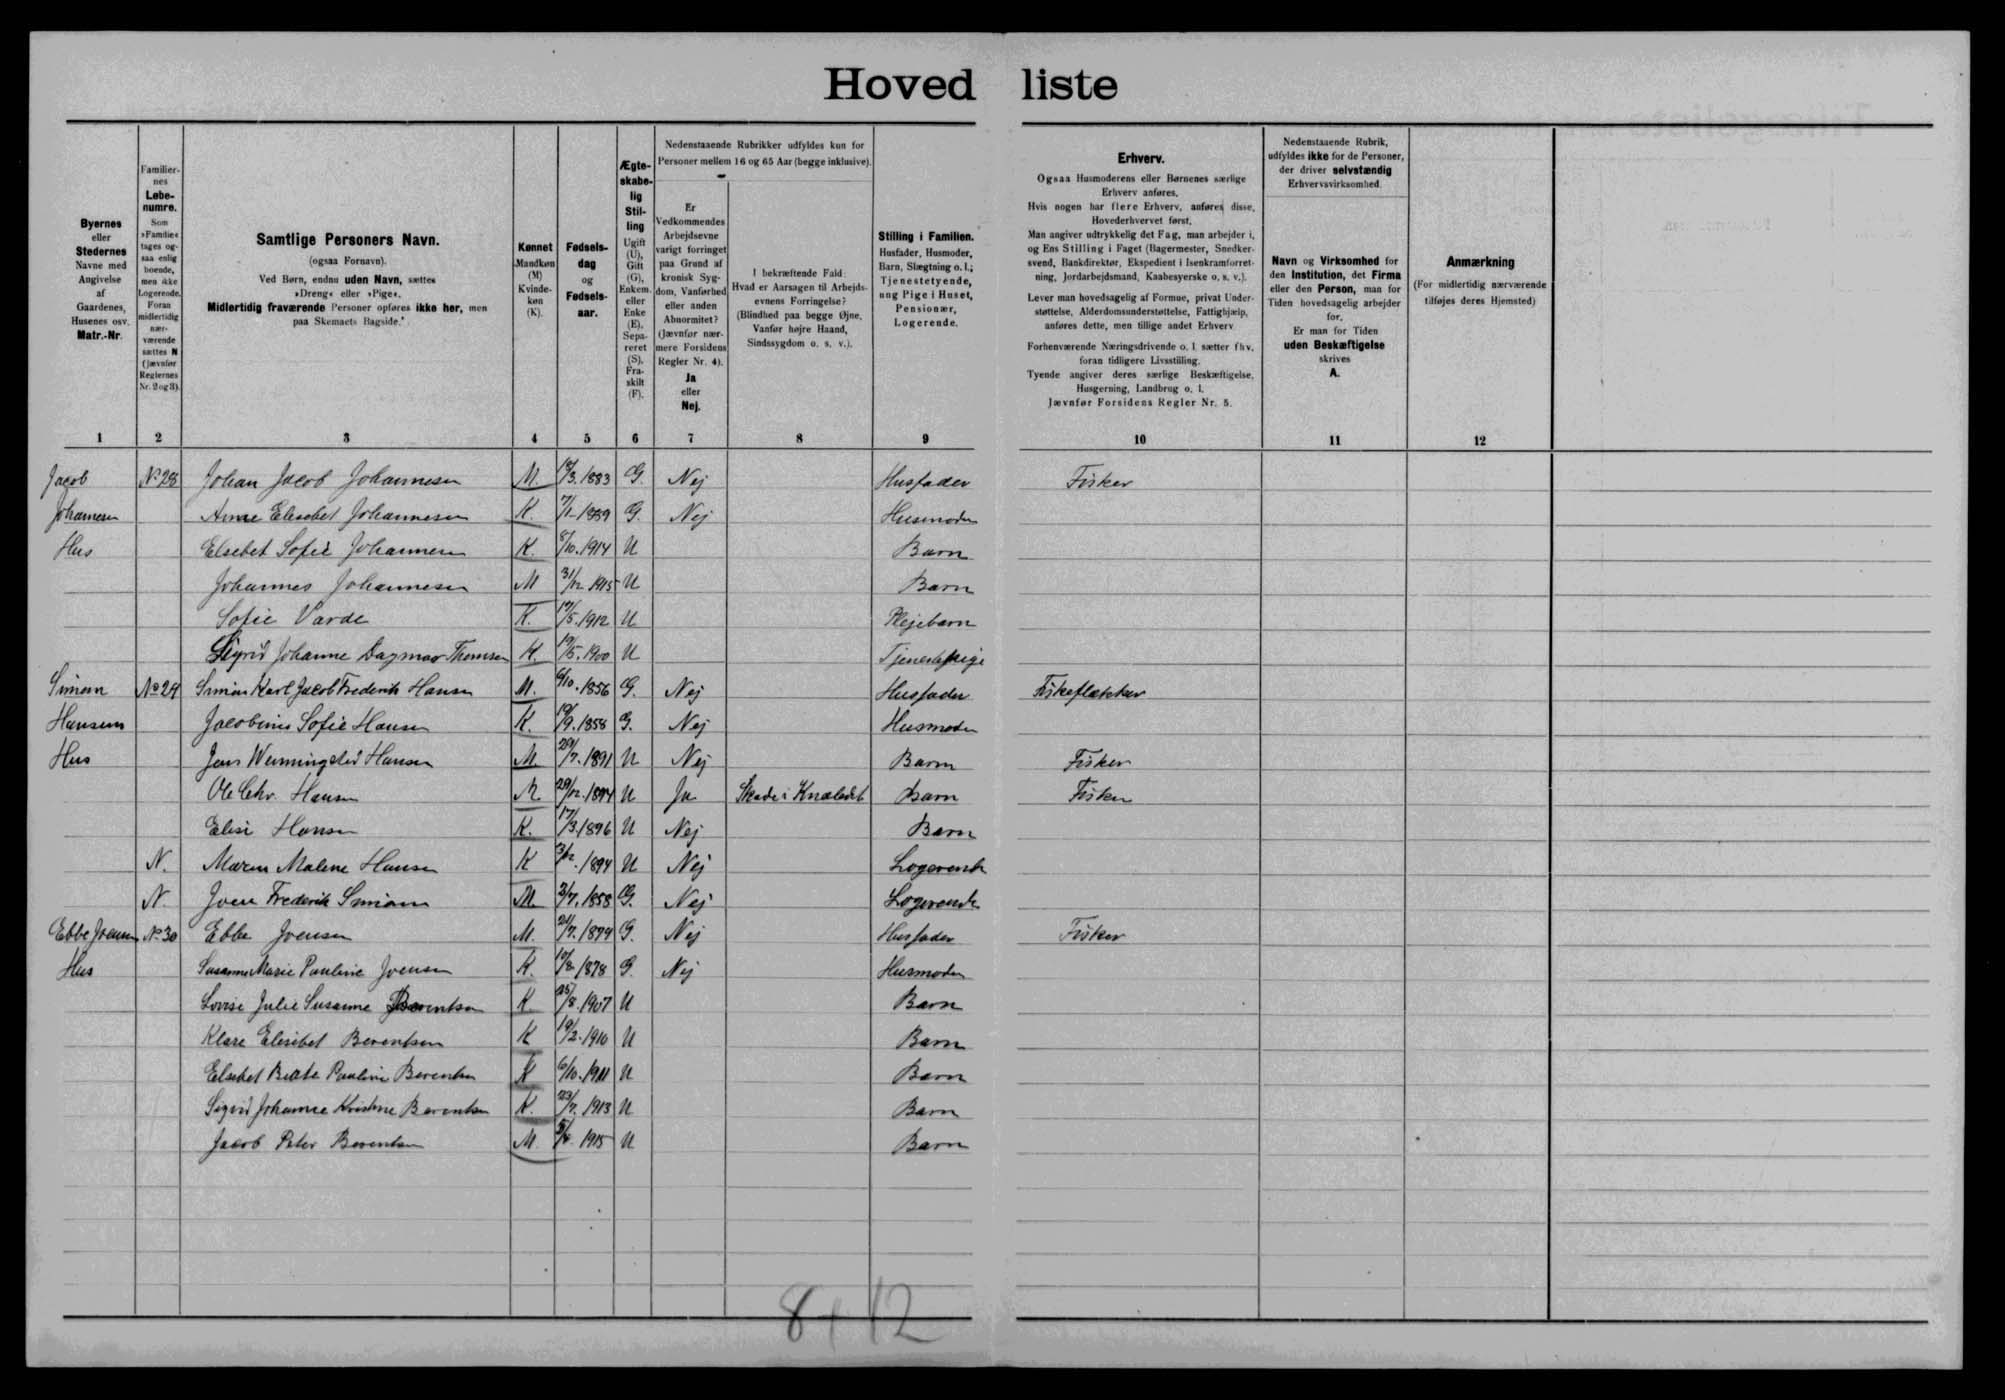 Hovedliste
Byernes eller Stedernes Navne med Angivelse af Gaardenes, Husenes osv. Matr.-Nr.
Familiernes Løbenumre. Som »Familie« tages ogsaa enlig boende, men ikke Logerende. Foran midlertidig nærværende sættes N (jævnfør Reglernes Nr. 2 og 3).
Samtlige Personers Navn.
(ogsaa Fornavn).
Ved Børn, endnu uden Navn, sættes
»Dreng« eller »Pige«.
Midlertidig fraværende Personer opføres ikke her, men
paa Skemaets Bagside.
Kønnet Mandkøn (M) Kvindekøn (K).
Fødselsdag og Fødselsaar.
Ægteskabelig Stilling Ugift (U), Gift (G), Enkem. eller Enke (E), Separeret (S), Fraskilt (F).
Nedenstaaende Rubrikker udfyldes kun for
Personer mellem 16 og 65 Aar (begge inklusive).
Er Vedkommendes Arbejdsevne varigt forringet paa Grund af kronisk Sygdom, Vanførhed eller anden Abnormitet? (Jævnfør nærmere Forsidens Regler Nr. 4). Ja eller Nej.
I bekræftende Fald:
Hvad er Aarsagen til Arbejdsevnens Forringelse?
(Blindhed paa begge Øjne,
Vanfør højre Haand,
Sindssygdom o. s. v.).
Stilling i Familien.
Husfader, Husmoder,
Barn, Slægtning o. l.;
Tjenestetyende,
ung Pige i Huset,
Pensionær,
Logerende.
Erhverv.
Ogsaa Husmoderens eller Børnenes særlige
Erhverv anføres.
Hvis nogen har flere Erhverv, anføres disse,
Hovederhvervet først.
Man angiver udtrykkelig det Fag, man arbejder i,
og Ens Stilling i Faget (Bagermester, Snedkersvend, Bankdirektør, Ekspedient i Isenkramforretning, Jordarbejdsmand, Kaabesyerske o. s. v.).
Lever man hovedsagelig af Formue, privat Understøttelse, Alderdomsunderstøttelse, Fattighjælp,
anføres dette, men tillige andet Erhverv
Forhenværende Næringsdrivende o. l. sætter fhv.
foran tidligere Livsstilling.
Tyende angiver deres særlige Beskæftigelse,
Husgerning, Landbrug o. l.
Jævnfør Forsidens Regler Nr. 5.
Nedenstaaende Rubrik,
udfyldes ikke for de Personer,
der driver selvstændig
Erhvervsvirksomhed.
Navn og Virksomhed for
den Institution, det Firma
eller den Person, man for
Tiden hovedsagelig arbejder
for.
Er man for Tiden
uden Beskæftigelse
skrives
A.
Anmærkning
(For midlertidig nærværende
tilføjes deres Hjemsted)
1 2 3 4 5 6 7 8 9 10 11 12
Jacob No 28 Johan Jacob Johannesen M. /3. 1883 G. Nej Husfader Fisker
Johannesen Anne Elisabet Johannesen K. 7/1- 1889 G. Nej Husmoder
Hus Elsebet Sofie Johannesen K. 8/10. 1914 U Barn
Johannes Johannesen M 31/12 1915 U Barn
Sofie Varde K. 17/5. 1912 U Plejebarn
Sigrid Johanne Dagmar Thomsen K. 19/5. 1900 U Tjenestepige
Simon No 29 Simon Karl Jacob Frederik Hansen M. 6/10. 1856 G. Nej Husfader Fiskeflækker
Hansens Jacobine Sofie Hansen K. 19/9. 1858 G. Nej Husmoder
Hus Jens Wenningsted Hansen M. 29/7. 1891 U Nej Barn Fisker
Ole Chr. Hansen M. 29/12. 1894 U Ja Skade i Knæledet Barn Fisker
Elise Hansen K. 17/3. 1896 U Nej Barn
N. Maren Malene Hansen K 3/12. 1894 U Nej Logerende
N Joen Frederik Simonsen M 3/7. 1858 G. Nej Logerende
Ebbe Joensen No 30 Ebbe Joensen M. 21/7. 1874 G. Nej Husfader Fisker
Hus Susanne Marie Pauline Joensen K. 10/8. 1878 G. Nej Husmoder
Lovise Julie Susanne Berentsen K 25/8. 1907 U Barn
Klara Elisebet Berentsen K 19/2. 1910 U Barn
Elsebet Beate Pauline Berentsen K 6/10. 1911 U Barn
Sigrid Johanne Kristine Berentsen K. 23/7. 1913 U Barn
Jacob Peter Berentsen M. 1915 U Barn
8 + 12